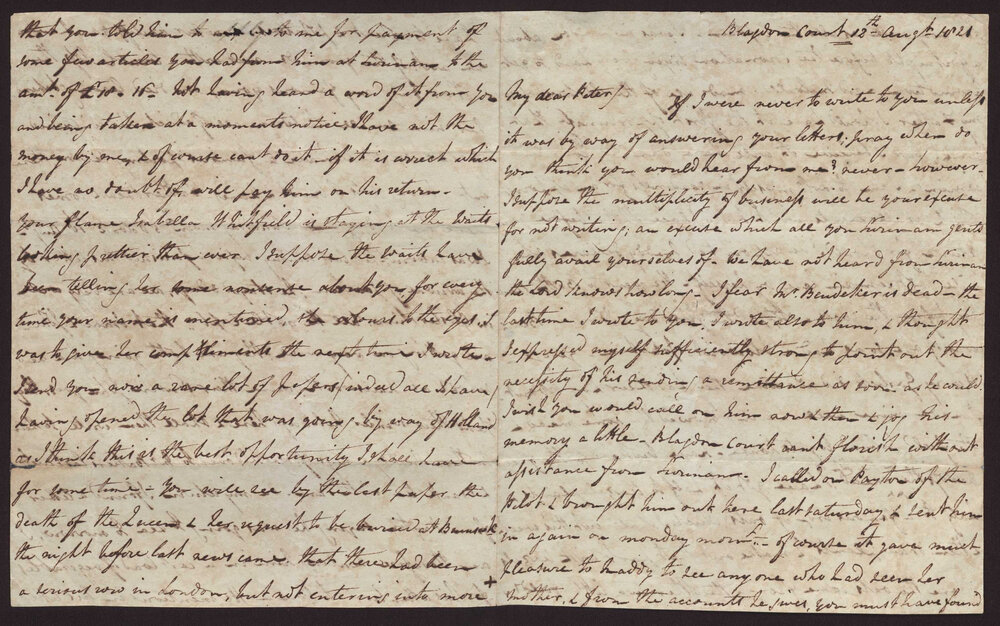 that you told him to me for payment of
some few articles you had from him at Surinam to the
amt. of £10. 15 - Not having heard a word of it from you
and being taken at a moments notice, I have not the
money by me, & of course cant do it - if it is correct which
I have no doubt of, will pay him on his return -
your flame Isabella Whitfield is staying at the Waits
looking prettier than ever. I suppose the Waits have
been telling her some nonsense about you, for every
time your name is mentioned she colours to the eyes. I
was to give her compliments the next time I wrote -
I send you now a rare lot of papers (indeed all I have,
having opened the lot that was going by way of Holland
as I think this is the best opportunity I shall have
for some time - you will see by the last paper the
death of the Queen & her request to be buried at Brunswick
the night before last news came that there had been
a serious row in London, but not entering into more +
Blagdon Court 12th Augt. 1821
My dear Peter/ If I were never to write to you unless
it was by way of answering your letters, pray when do
you think you would hear from me? never - however -
I suppose the multiplicity of business will be your excuse
for not writing; an excuse which all you Surinam gents
fully avail yourselves of - We have not heard from Surinam
the Lord knows how long - I fear Mr. Beudeker is dead - the
last time I wrote to you I wrote also to him, & thought
I expressed myself sufficiently strong to point out the
necessity of his sending a remittance as soon as he could
I wish you would call on him now & then & jog his
memory a little - Blagdon Court cant florish without
assistance from Surinam - I called on Paytor of the
Pilot & brought him out here last Saturday, & sent him
in again on monday morng. - of course it gave much
pleasure to Maddy to see any one who had seen her
Mother, & from the accounts he gives, you must have found